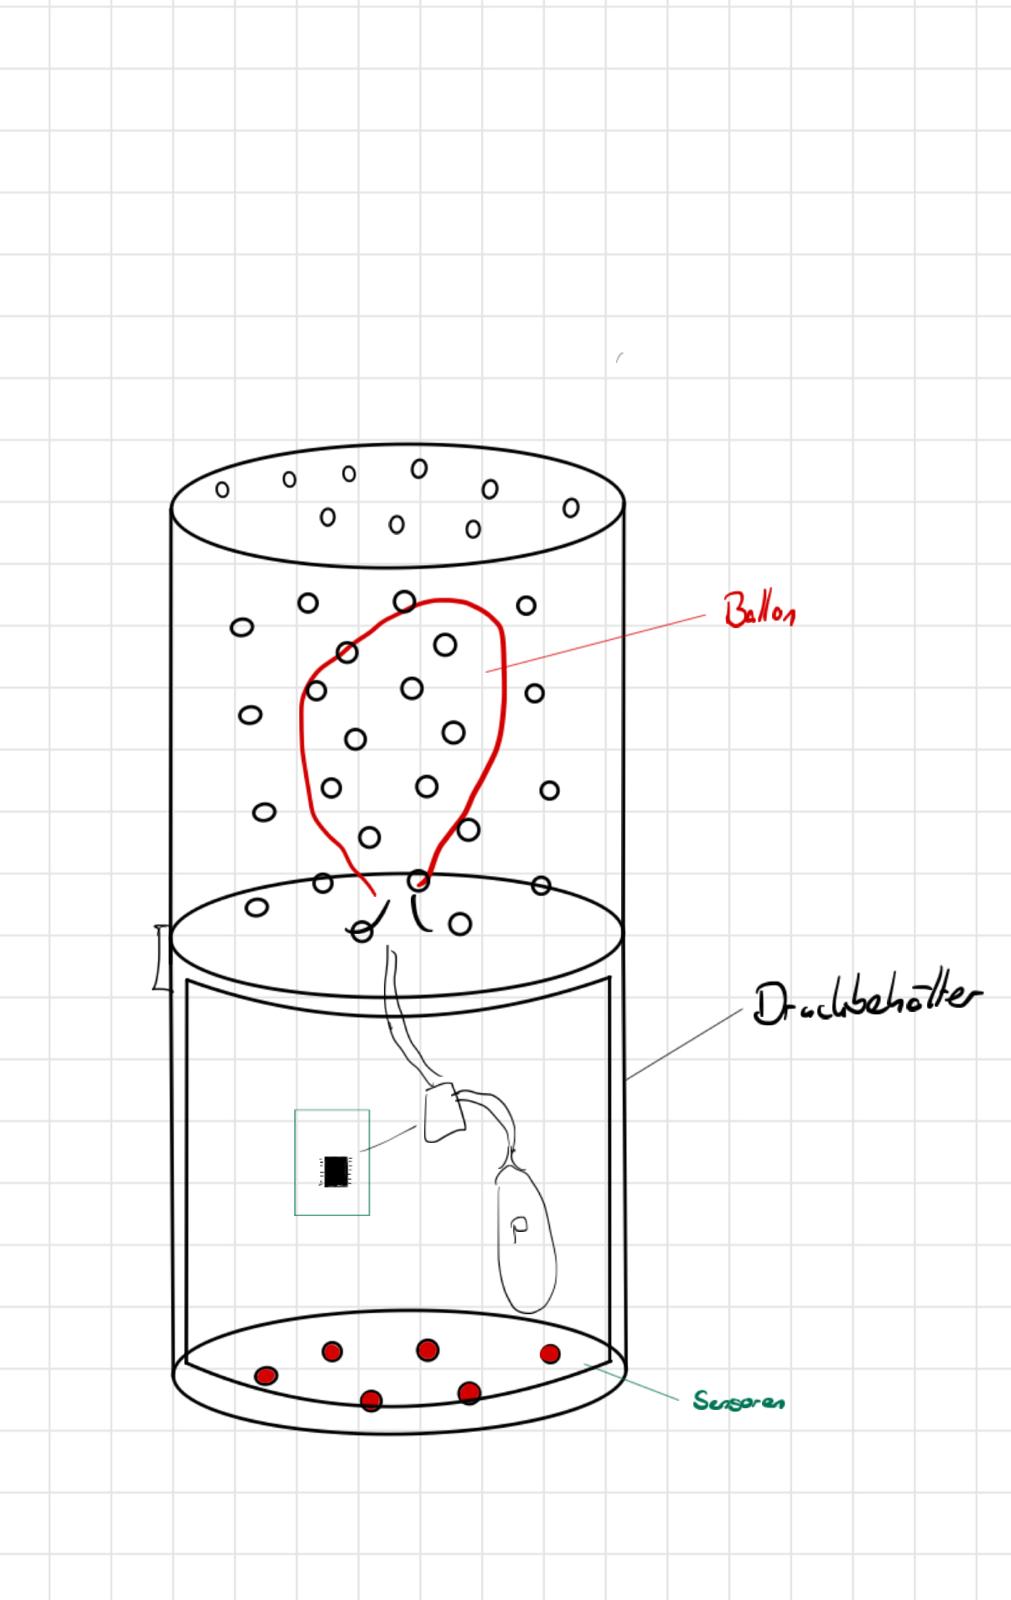 Ballon
Druckbehälter
P
Sensoren